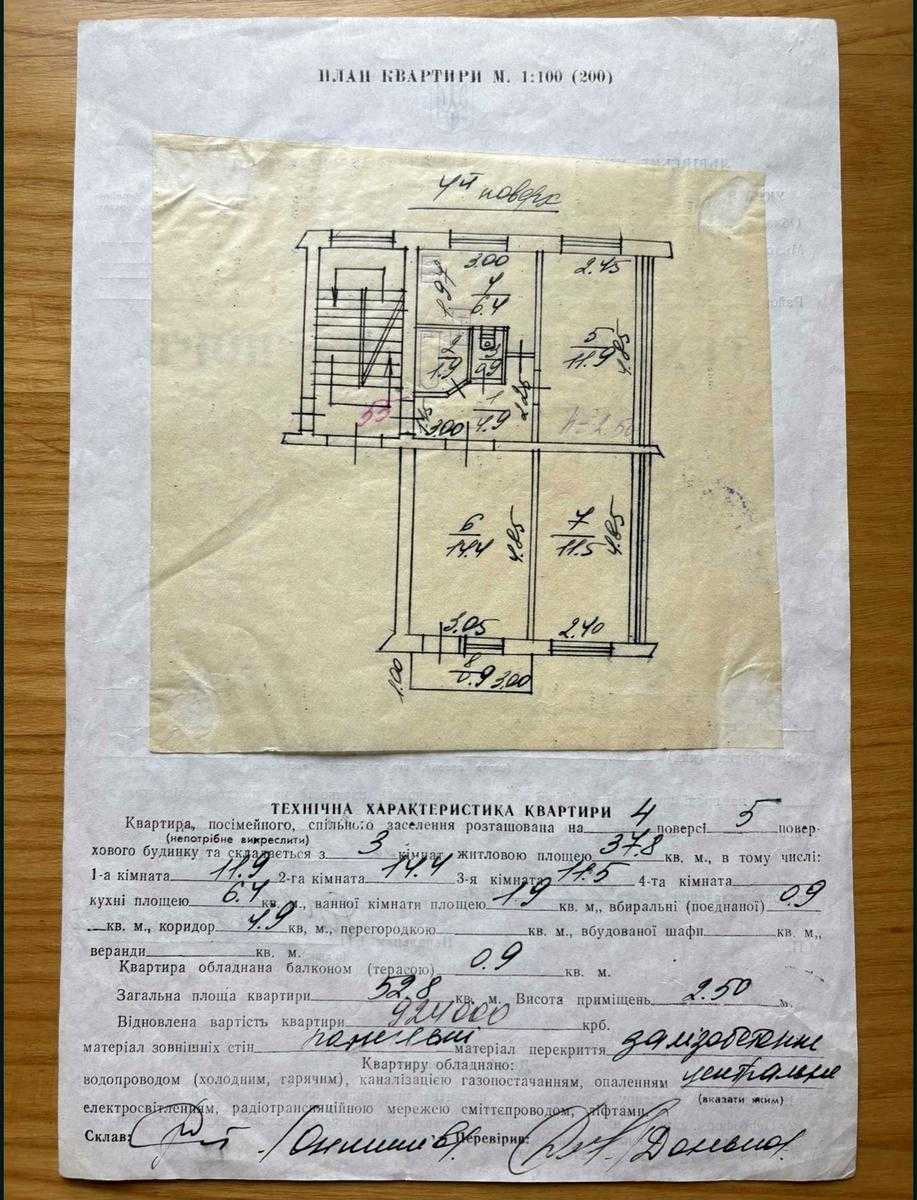 ПЛАН КВАРТИРИ М. 1:100 (200)
4й поверх
3.00
2.45
1.97
4
6.4
5
11.9
4.85
2
1.9
3
0.9
2.25
1
4.9
1.45
3.00
55
h=2.50
6
14.4
4.85
7
11.5
4.85
3.05
2.40
8
0.9
3.00
1.00
ТЕХНІЧНА ХАРАКТЕРИСТИКА КВАРТИРИ
Квартира, посімейного, спільного заселення розташована на 4 поверсі 5 повер-
(непотрібне викреслити)
хового будинку та складається з 3 кімнат житловою площею 37.8 кв. м., в тому числі:
1-а кімната 11.9 2-га кімната 14.4 3-я кімната 11.5 4-та кімната
кухні площею 6.4 кв. м., ванної кімнати площею 1.9 кв. м,, вбиральні (поєднаної) 0.9
кв. м., коридор 4.9 кв, м., перегородкою кв. м., вбудованої шафи кв. м,,
веранди кв. м.
Квартира обладнана балконом (терасою) 0.9 кв. м.
Загальна площа квартири 52.8 кв. м. Висота приміщень 2.50 м.
Відновлена вартість квартири 924000 крб.
матеріал зовнішніх стін панельні матеріал перекриття залізобетонне
Квартиру обладнано:
водопроводом (холодним, гарячим), каналізацією газопостачанням, опаленням центральне
(вказати яким)
електросвітленням, радіотрансляційною мережею сміттєпроводом, ліфтами
Склав: Перевірив: